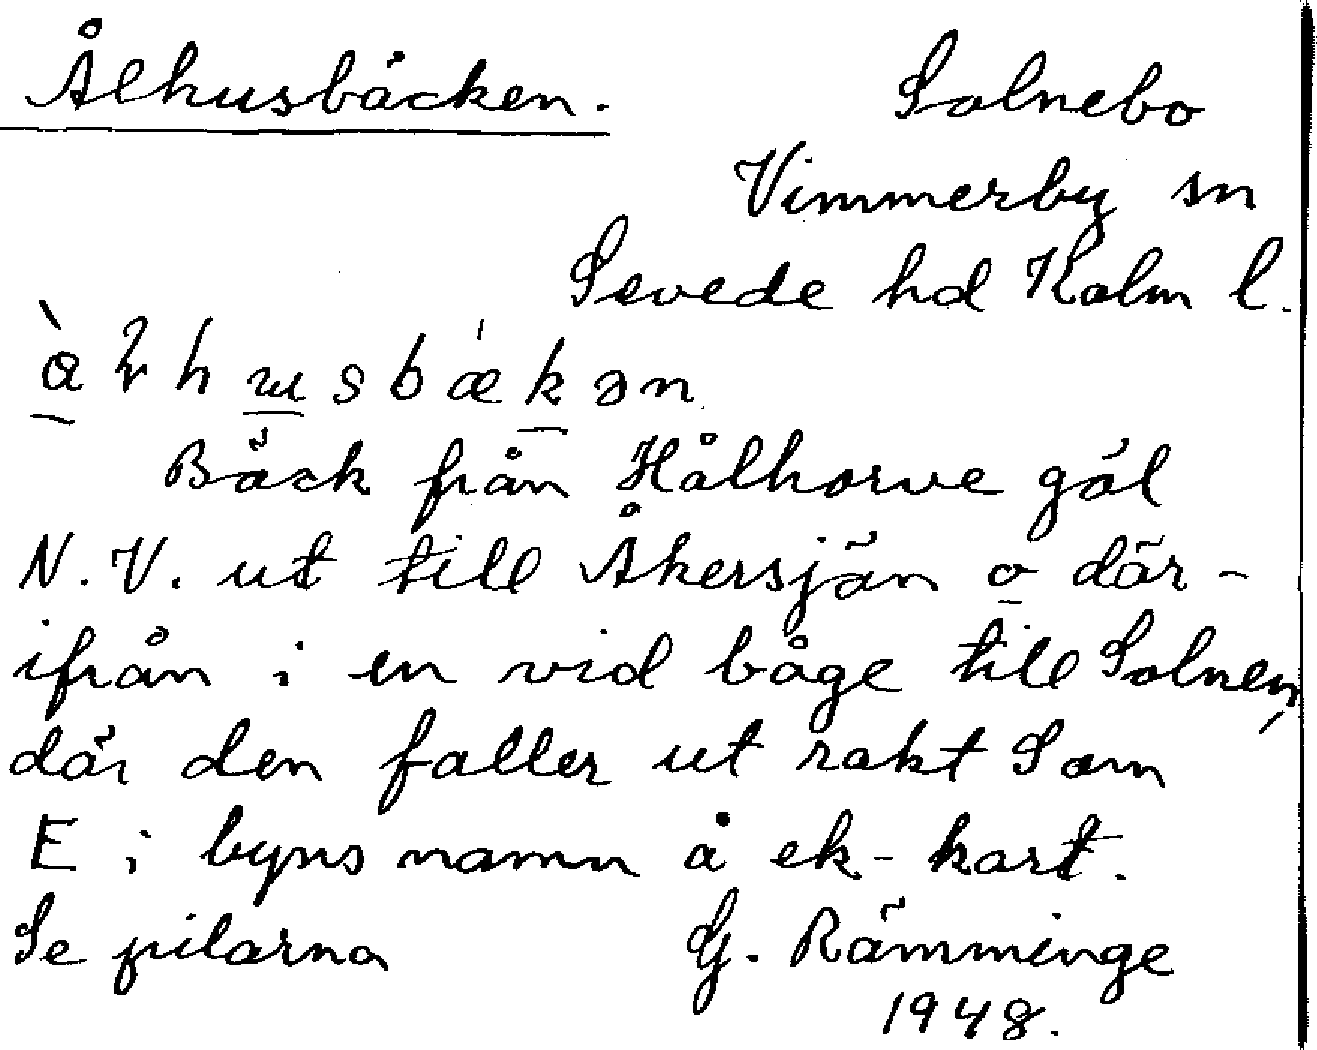 Ålhusbäcken.
Solnebo
Vimmerby sn
Sevede hd Kalm l.
Bäck från Hålhorve göl
N.V. ut till Åkersjön o där-
ifrån i en vid båge till Solnen,
där den faller ut rakt Som
E i byns namn å ek-kart.
Se pilarna
G. Rämminge
1948.